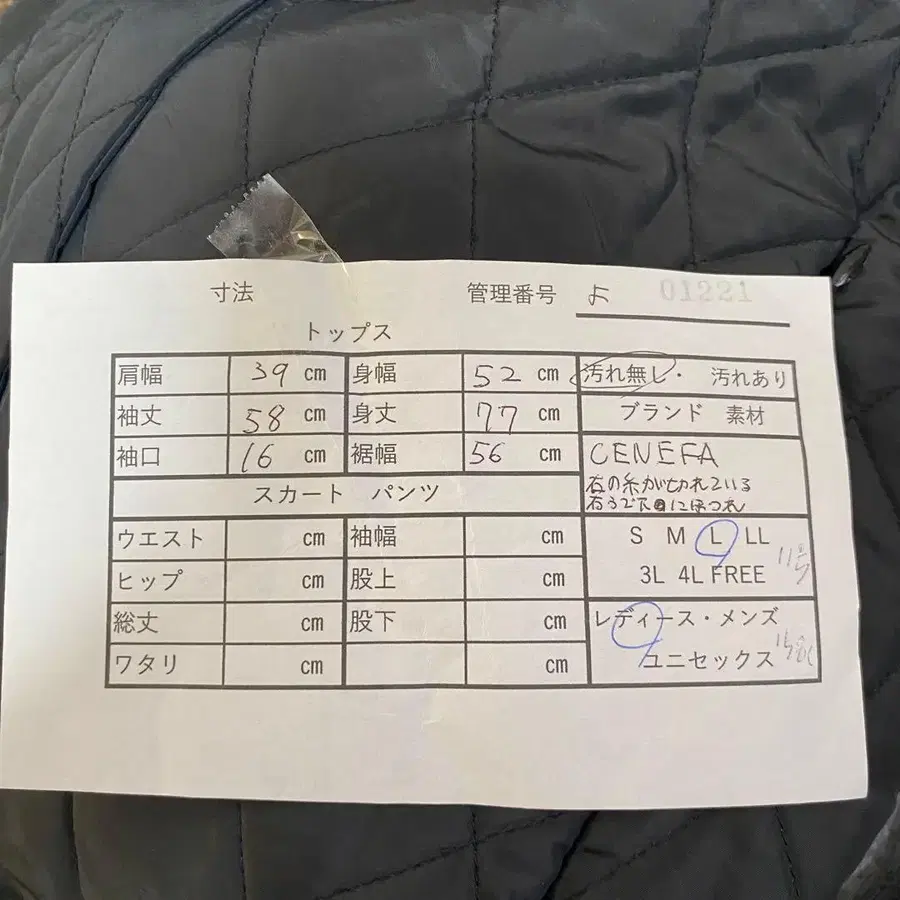 寸法 管理番号 よ 01221
トップス
肩幅 39 cm 身幅 52 cm 汚れ無し・ 汚れあり
袖丈 58 cm 身丈 77 cm ブランド 素材
袖口 16 cm 裾幅 56 cm CENEFA
右の糸が切れている
スカート パンツ
ウエスト cm 袖幅 cm S M L LL
11号
ヒップ cm 股上 cm 3L 4L FREE
総丈 cm 股下 cm レディース・メンズ
ワタリ cm cm ユニセックス